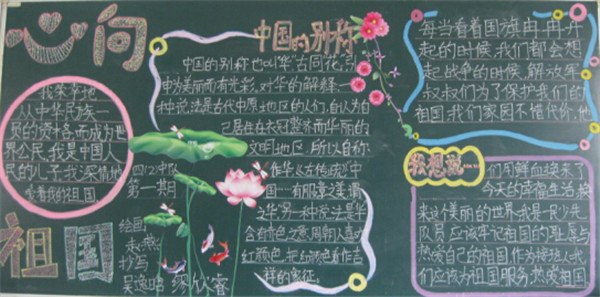 心向
祖国
我荣幸地
从中华民族一
员的资本而成为世
界公民,我是中国人
民的儿子,我深情地
爱着我的祖国。
四(2)中队
第一期
绘画
抄写
中国的别称
中国的别称也叫“华”古同花,引
申为美丽而有光彩,对华的解释一
种说法是古代中原地区的人们,自认为自
己居住在衣冠整齐而华丽的
文明地区,所以自称
之华,另一种说法是华
含有赤色之意,周朝人喜欢
红颜色,把红颜色看作吉
祥的象征。
每当看着国旗冉冉升
起的时候,我们都会想
起战争的时候,解放军
叔叔们为了保护我们的
祖国,我们家园不错代价,他
我想说…
们用鲜血换来了
今天的幸福生活,换
来这美丽的世界,我是一名少先
队员应该牢记祖国的耻辱与
热爱自己的祖国作为接班人我
们应该为祖国服务,热爱祖国